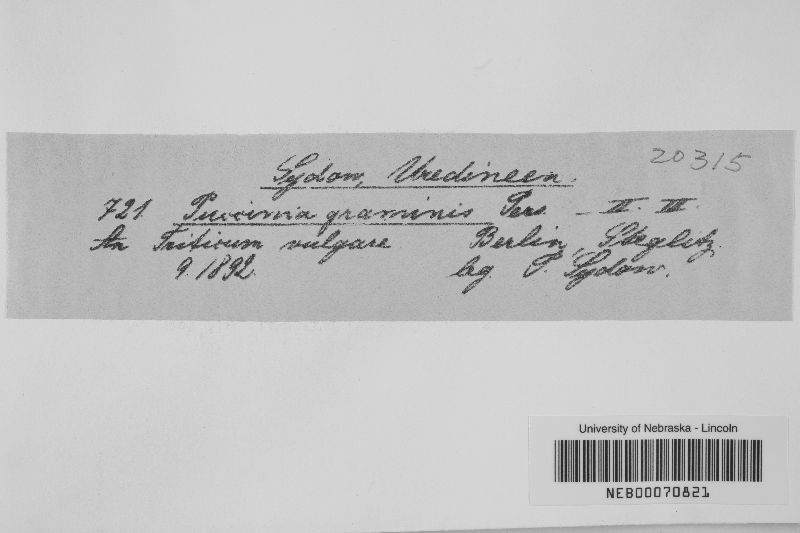 20315
Sydow, Uredineen.
721 Puccinia graminis Pers. – II. III.
An Triticum vulgare. Berlin, Steglitz.
9. 1892. leg. P. Sydow.
University of Nebraska - Lincoln
NEB00070821